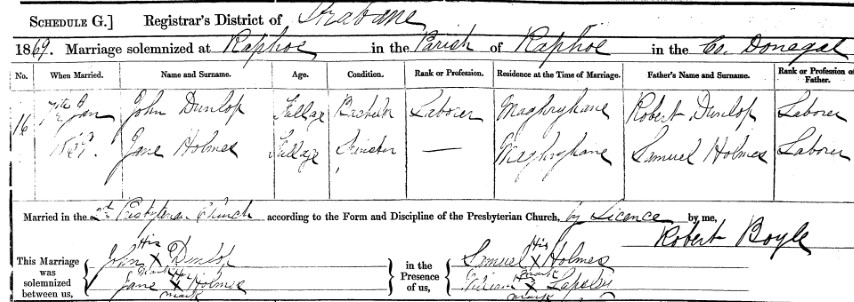 SCHEDULE G.] Registrar's District of Strabane
1869. Marriage solemnized at Raphoe in the Parish of Raphoe in the Co. Donegal
No. When Married. Name and Surname. Age. Condition. Rank or Profession. Residence at the Time of Marriage. Father's Name and Surname. Rank or Profession of Father.
16 7th Jan John Dunlop Full age Bachelor Laborer Robert Dunlop Laborer
1869. Jane Holmes Full age Spinster — Samuel Holmes Laborer
Married in the 2nd Presbyterian Church according to the Form and Discipline of the Presbyterian Church, by Licence by me,
Robert Boyle
This Marriage was solemnized between us,
John His X mark Dunlop
Jane X mark Holmes
in the Presence of us,
Samuel His X mark Holmes
William X mark